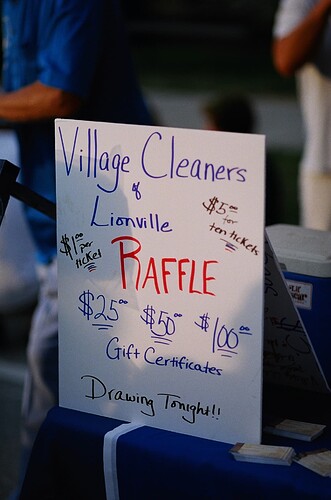 Village Cleaners
of
Lionville
$1.00 per
ticket
$5.00
for
ten tickets
RAFFLE
$25.00 $50.00 $100.00
Gift Certificates
Drawing Tonight!!